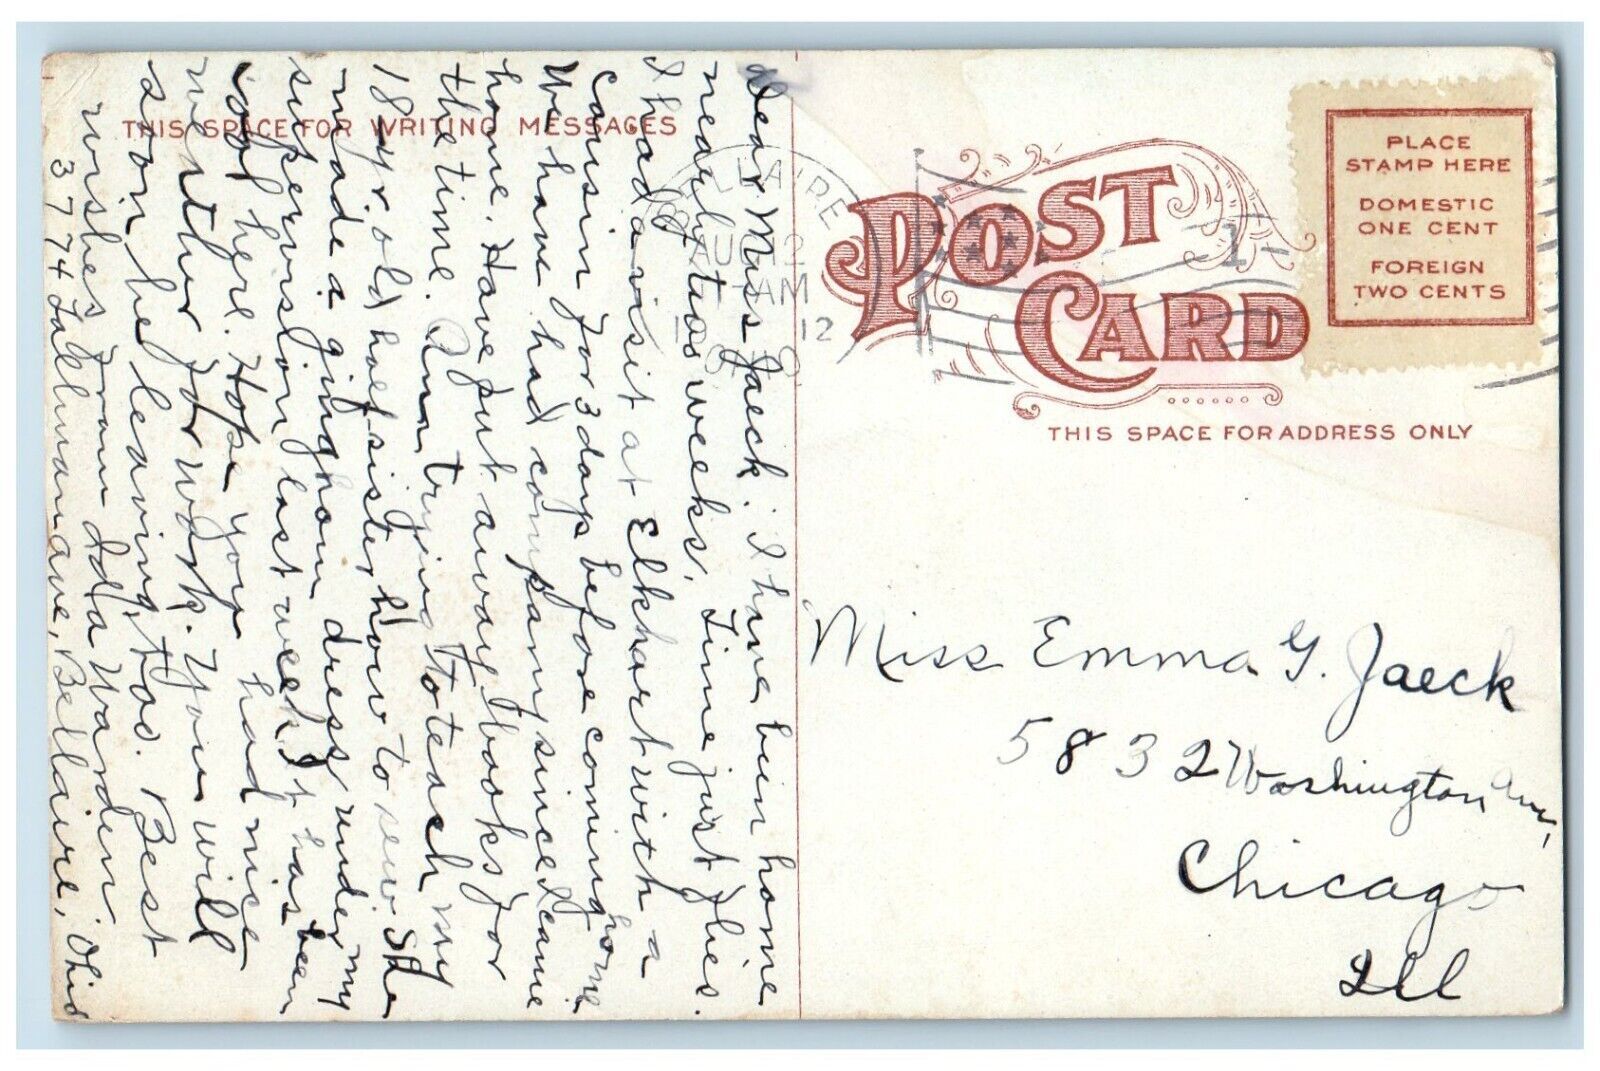 THIS SPACE FOR WRITING MESSAGES
Dear Miss Jaeck: I have bin home
nearly two weeks. Time just flies.
I had a visit at Elkhart with a
cousin for 3 days before coming home.
We have had company since I came
home. Have put away books for
the time. Am trying to teach my
18 yr old half sister how to sew. She
made a gingham dress under my
supervision last week. It has been
cool here. Hope you had nice
weather for work. You will
soon be leaving, too. Best
wishes from Ida Warden.
3774 Tallman ave, Bellaire, Ohio
AM
12
POST
CARD
PLACE
STAMP HERE
DOMESTIC
ONE CENT
FOREIGN
TWO CENTS
THIS SPACE FOR ADDRESS ONLY
Miss Emma G. Jaeck
5832 Washington Ave,
Chicago
Ill